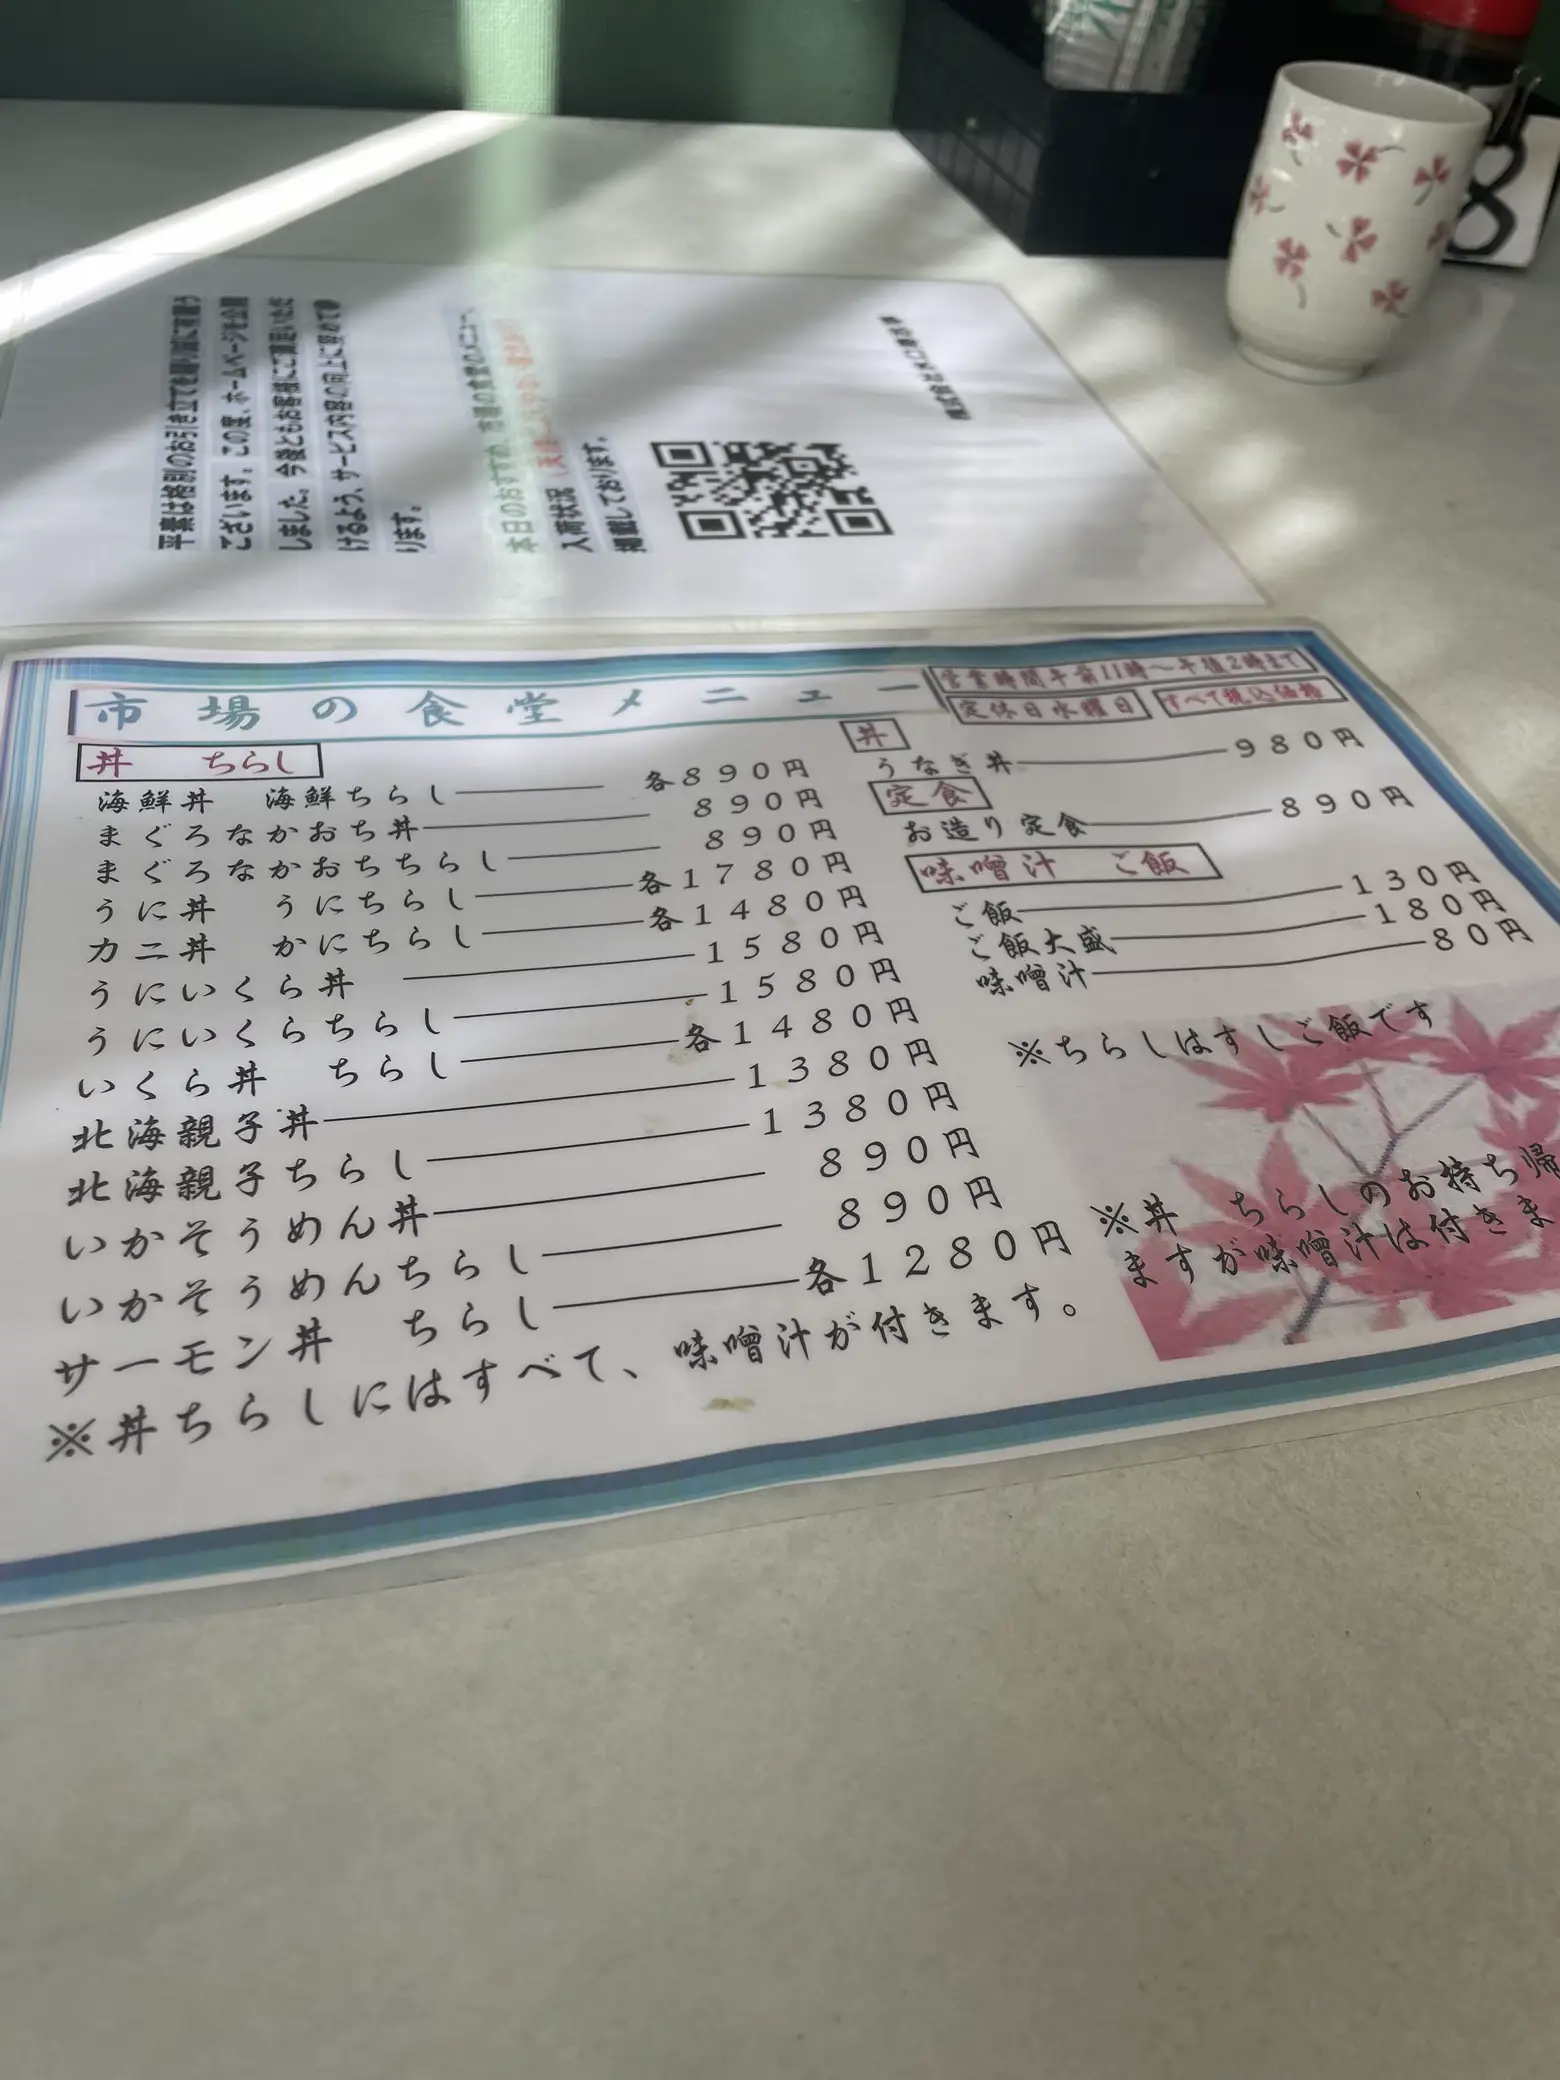 平素は格別のお引き立てを賜り誠に有難う
ございます。この度、ホームページを公開
しました。今後ともお客様にご満足いただ
けるよう、サービス内容の向上に努めて参
ります。
本日のおすすめ、市場の食堂のメニュー、
入荷状況
掲載しております。
株式会社
8
市場の食堂メニュー
営業時間午前11時～午後2時まで
定休日水曜日 すべて税込価格
丼 ちらし
海鮮丼 海鮮ちらし 各890円
まぐろなかおち丼 890円
まぐろなかおちちらし 890円
うに丼 うにちらし 各1780円
カニ丼 かにちらし 各1480円
うにいくら丼 1580円
うにいくらちらし 1580円
いくら丼 ちらし 各1480円
北海親子丼 1380円
北海親子ちらし 1380円
いかそうめん丼 890円
いかそうめんちらし 890円
サーモン丼 ちらし 各1280円
※丼ちらしにはすべて、味噌汁が付きます。
丼
うなぎ丼 980円
定食
お造り定食 890円
味噌汁 ご飯
ご飯 130円
ご飯大盛 180円
味噌汁 80円
※ちらしはすしご飯です
※丼 ちらしのお持ち帰
ますが味噌汁は付きま